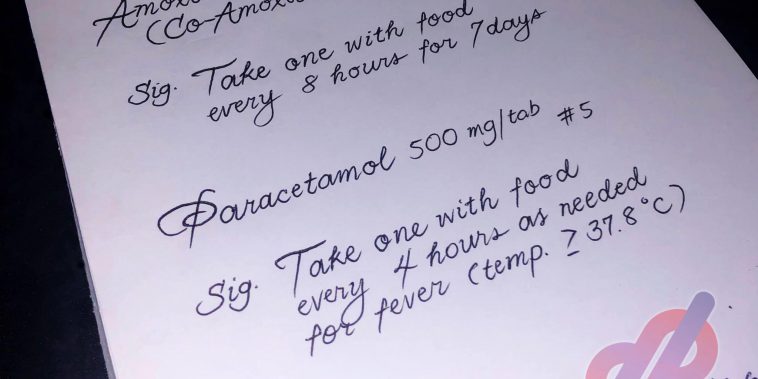 (Co-Amox
Sig. Take one with food
every 8 hours for 7 days
Paracetamol 500 mg/tab #5
Sig. Take one with food
every 4 hours as needed
for fever (temp. ≥ 37.8°C)